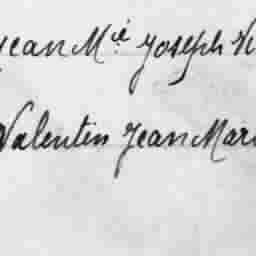 Jean Mie Joseph V
Valentin Jean Mari